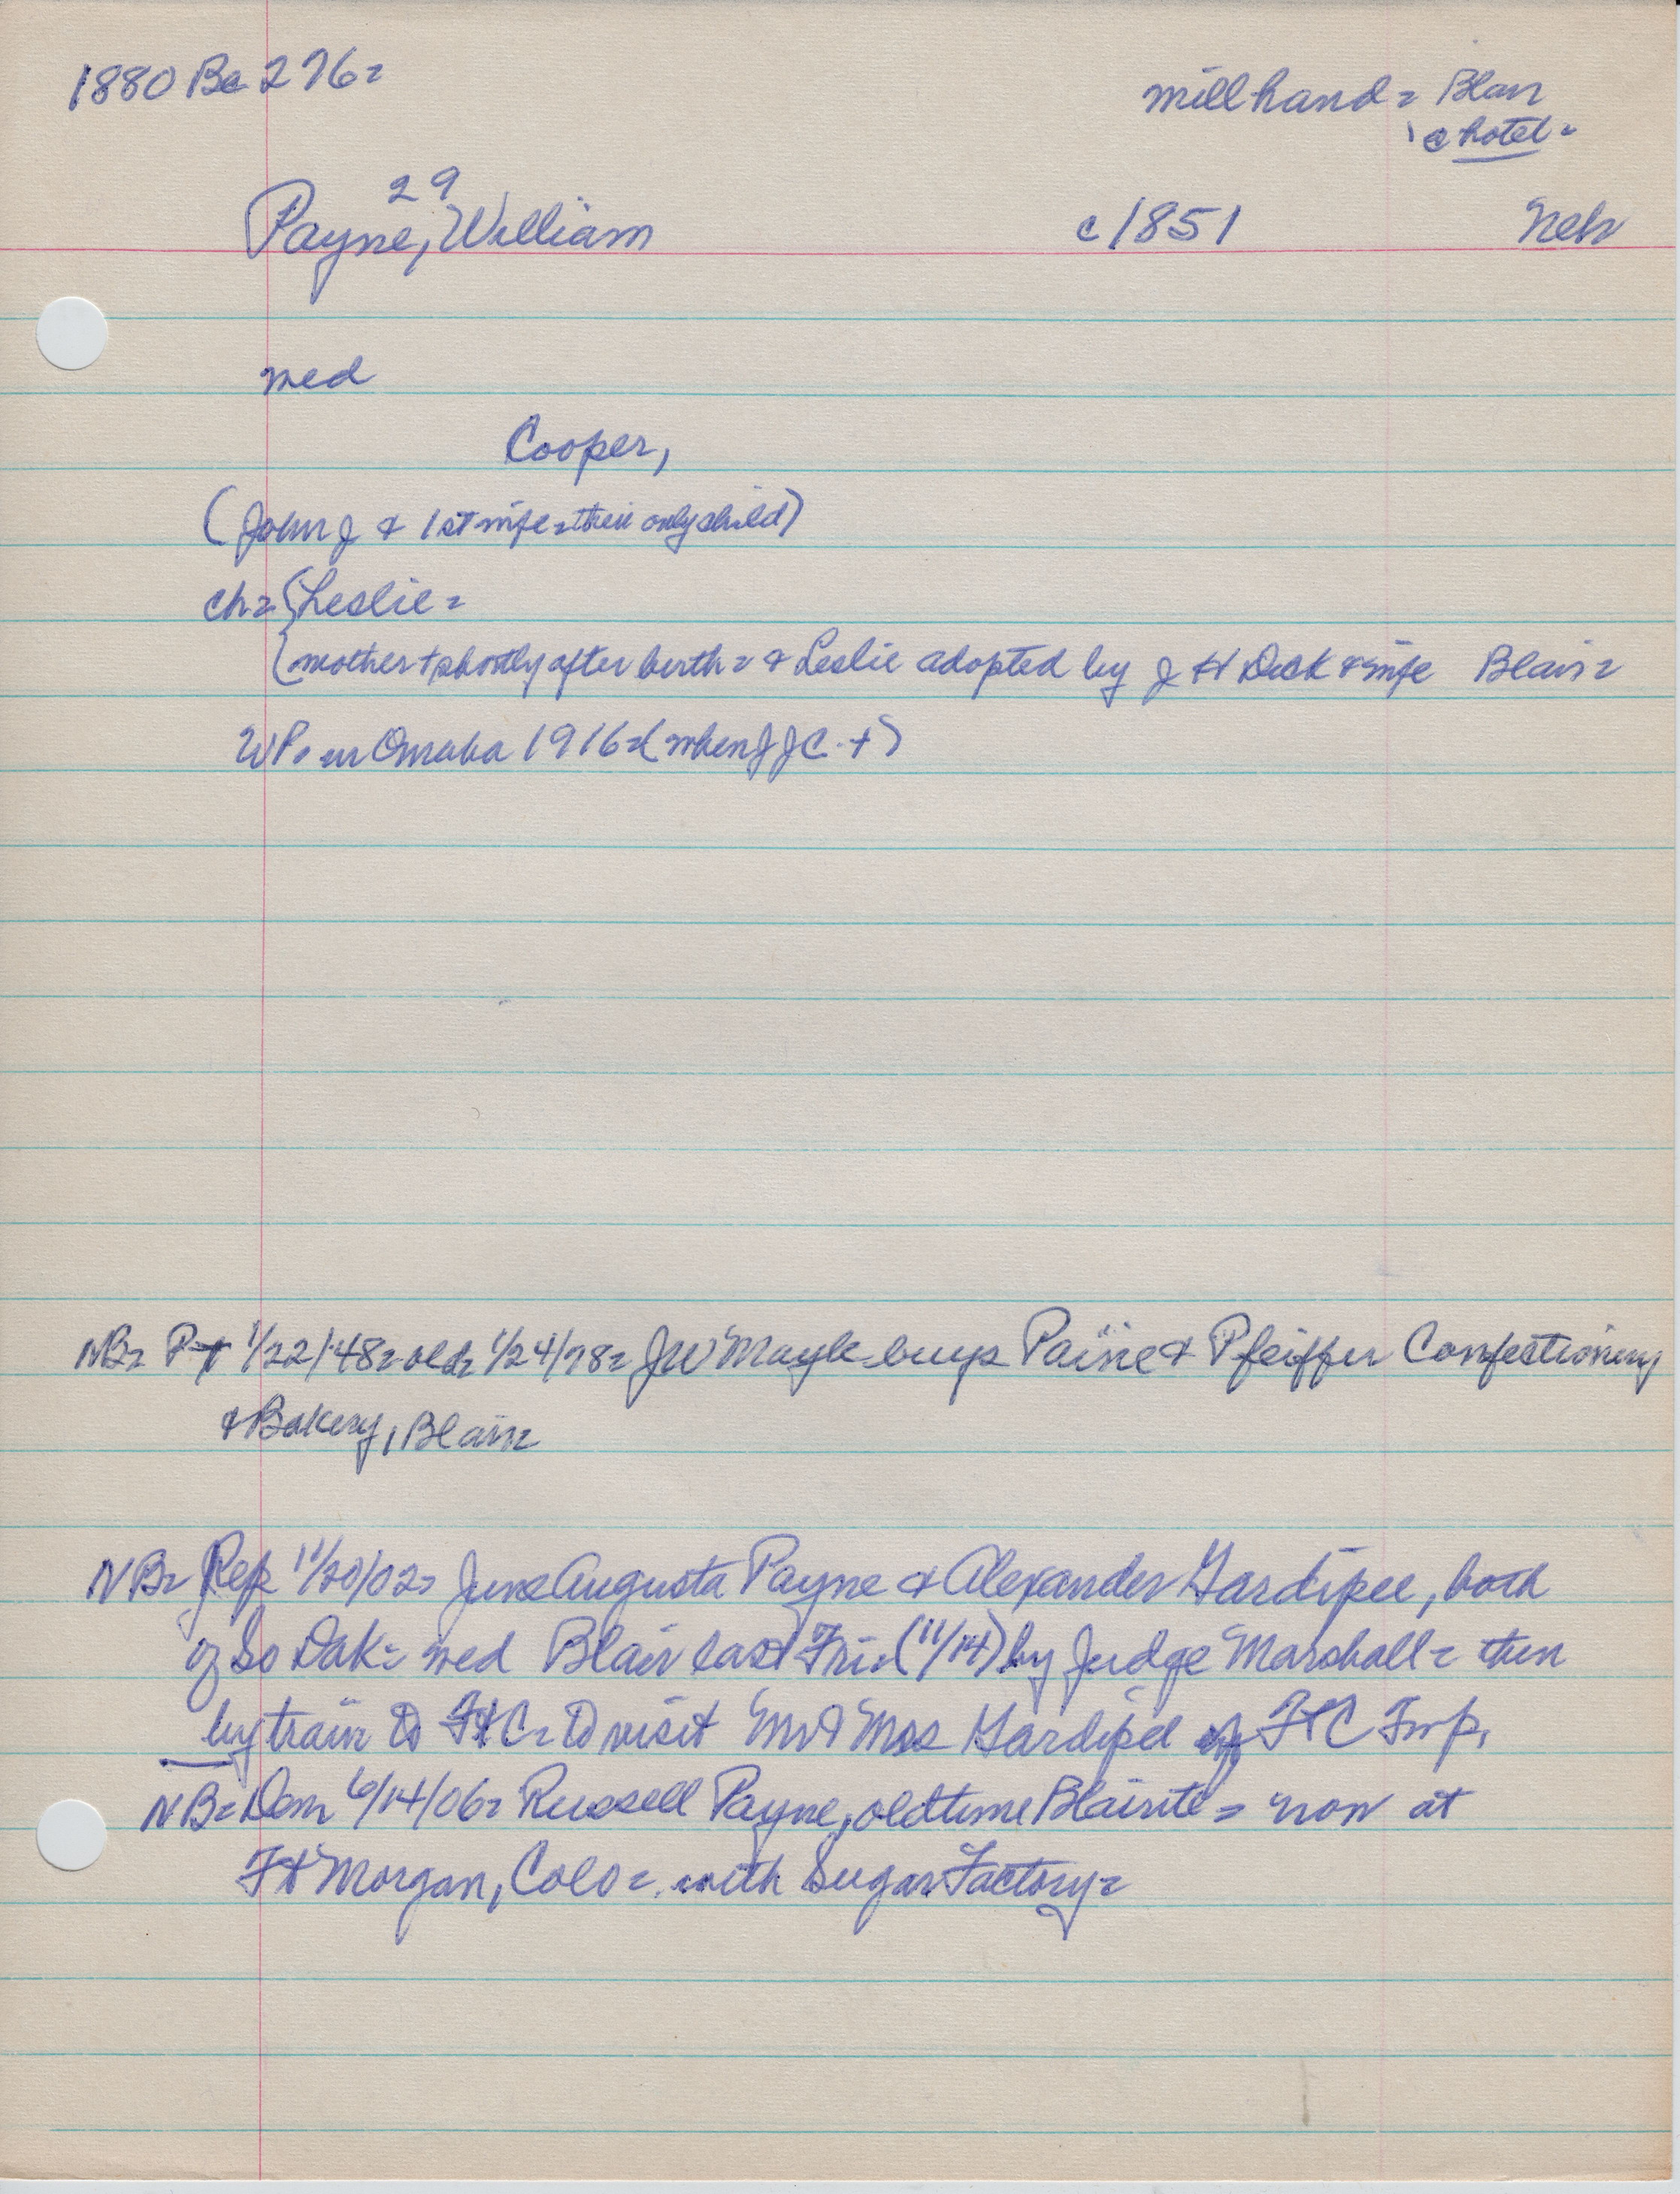 1880 Ba 276=
millhand = Blair
@ hotel =
29
Payne, William c1851 Neb
med
Cooper,
(John J & 1st wife = their only child)
ch = {Leslie =
{mother + shortly after birth = & Leslie adopted by J H Dick & wife Blair =
WP = in Omaha 1916 = (when J J C. +)
NB = 1/22/48 = old = 1/24/78 = J W Mayle buys Paine & Pfeiffer Confectionery
& Bakery, Blair
NB = Rep 11/20/02 = June Augusta Payne & Alexander Gardipee, both
of So Dak = wed Blair last Fri = (11/14) by Judge Marshall = then
by train to Ft C = to visit Mr & Mrs Gardipee of Ft C Twp.
NB = Dem 6/14/06 = Russell Payne, oldtime Blairite = now at
Ft Morgan, Colo = with Sugar Factory =